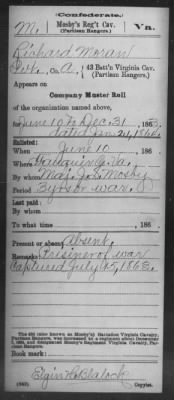 Confederate.
M. Mosby's Reg't Cav. Va.
(Partisan Rangers.)
Richard Moran
Pvt., Co. A, 43 Batt'n Virginia Cav.
(Partisan Rangers.)
Appears on
Company Muster Roll
of the organization named above,
for June 10 to Dec. 31, 1863.
dated Jan 21, 1864
Enlisted:
When June 10, 186
Where Va.
By whom Maj. J. S. Mosby
Period 3 yrs or war.
Last paid:
By whom
To what time , 186
Present or absent Absent
Remarks: Prisoner of war
Captured July 1863.
The 43d (also known as Mosby's) Battalion Virginia Cavalry,
Partisan Rangers, was increased to a regiment about December
, 1864, and designated Mosby's Regiment Virginia Cavalry, Partisan Rangers.
Book mark:
Elgin H. Blalock
(642) Copyist.